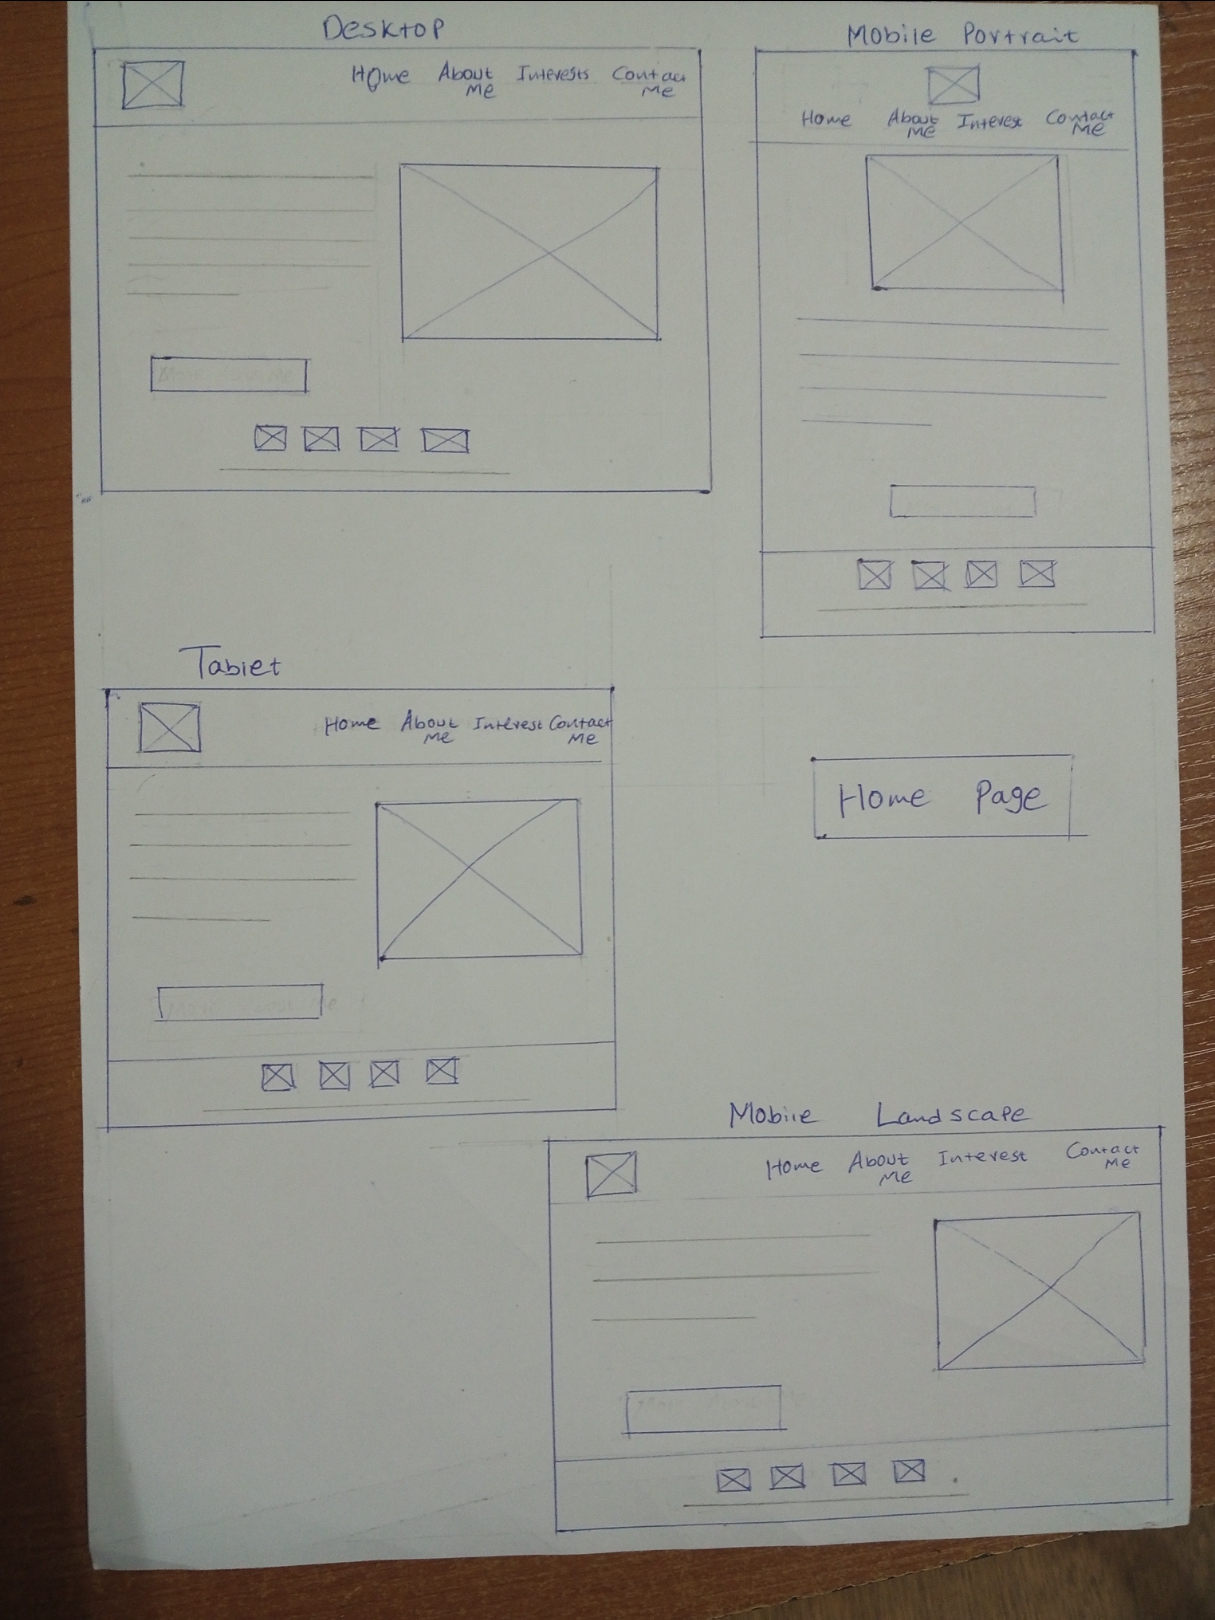 Desktop
Home About Interests Contac
Me Me
Mobile Portrait
Home About Interest Contact
Me Me
Tablet
Home About Interest Contact
Me Me
Home Page
Mobile Landscape
Home About Interest Contact
Me Me